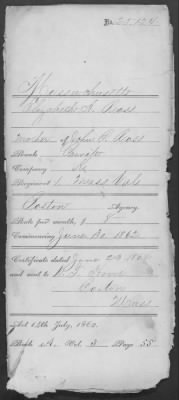 No. 23,124
Massachusetts
Elizabeth A. Ross
mother of John C. Ross
Rank, Private
Company K
Regiment 1. Mass Vols
Boston Agency.
Rate per month, $ 8
Commencing June 30 1862
Certificate dated June 23 1864
and sent to
Boston
Mass
Act 14th July, 1862.
Book A Vol. 3 Page 55